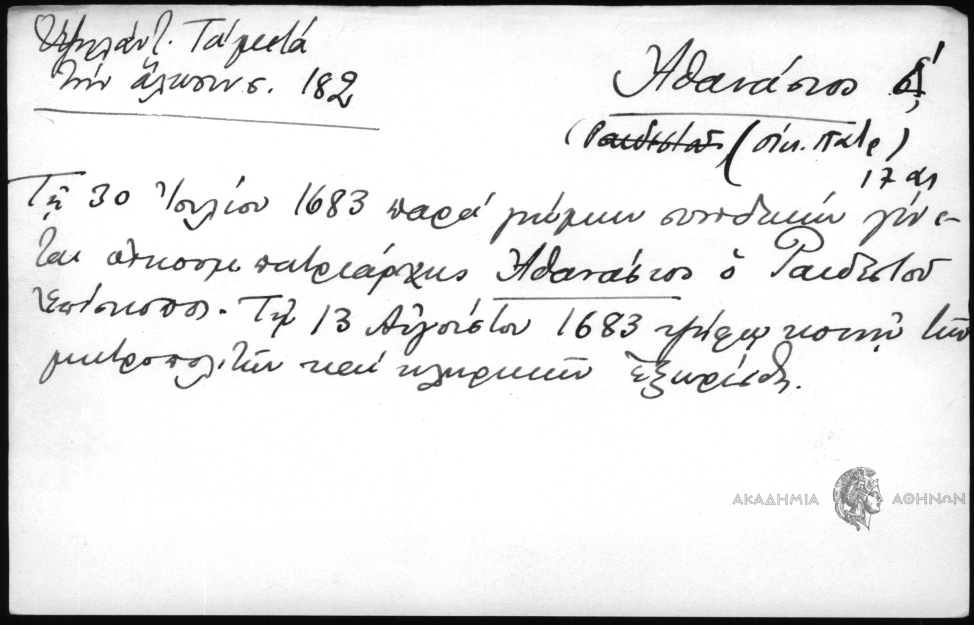 Ὑψηλάντ. Τά μετά
τήν ἅλωσιν σ. 182
Ἀθανάσιος Δ΄
(Ραιδεστοῦ (οἰκ. πατρ)
17 αι
Τῇ 30 Ἰουλίου 1683 παρά γνώμην συνοδικήν γίνε-
ται οἰκουμ πατριάρχης Ἀθανάσιος ὁ Ραιδεστοῦ
ἐπίσκοπος. Τῇ 13 Αὐγούστου 1683 ψήφῳ κοινῇ τῶν
μητροπολιτῶν καί κληρικῶν ἐξωρίσθη.
ΑΚΑΔΗΜΙΑ ΑΘΗΝΩΝ